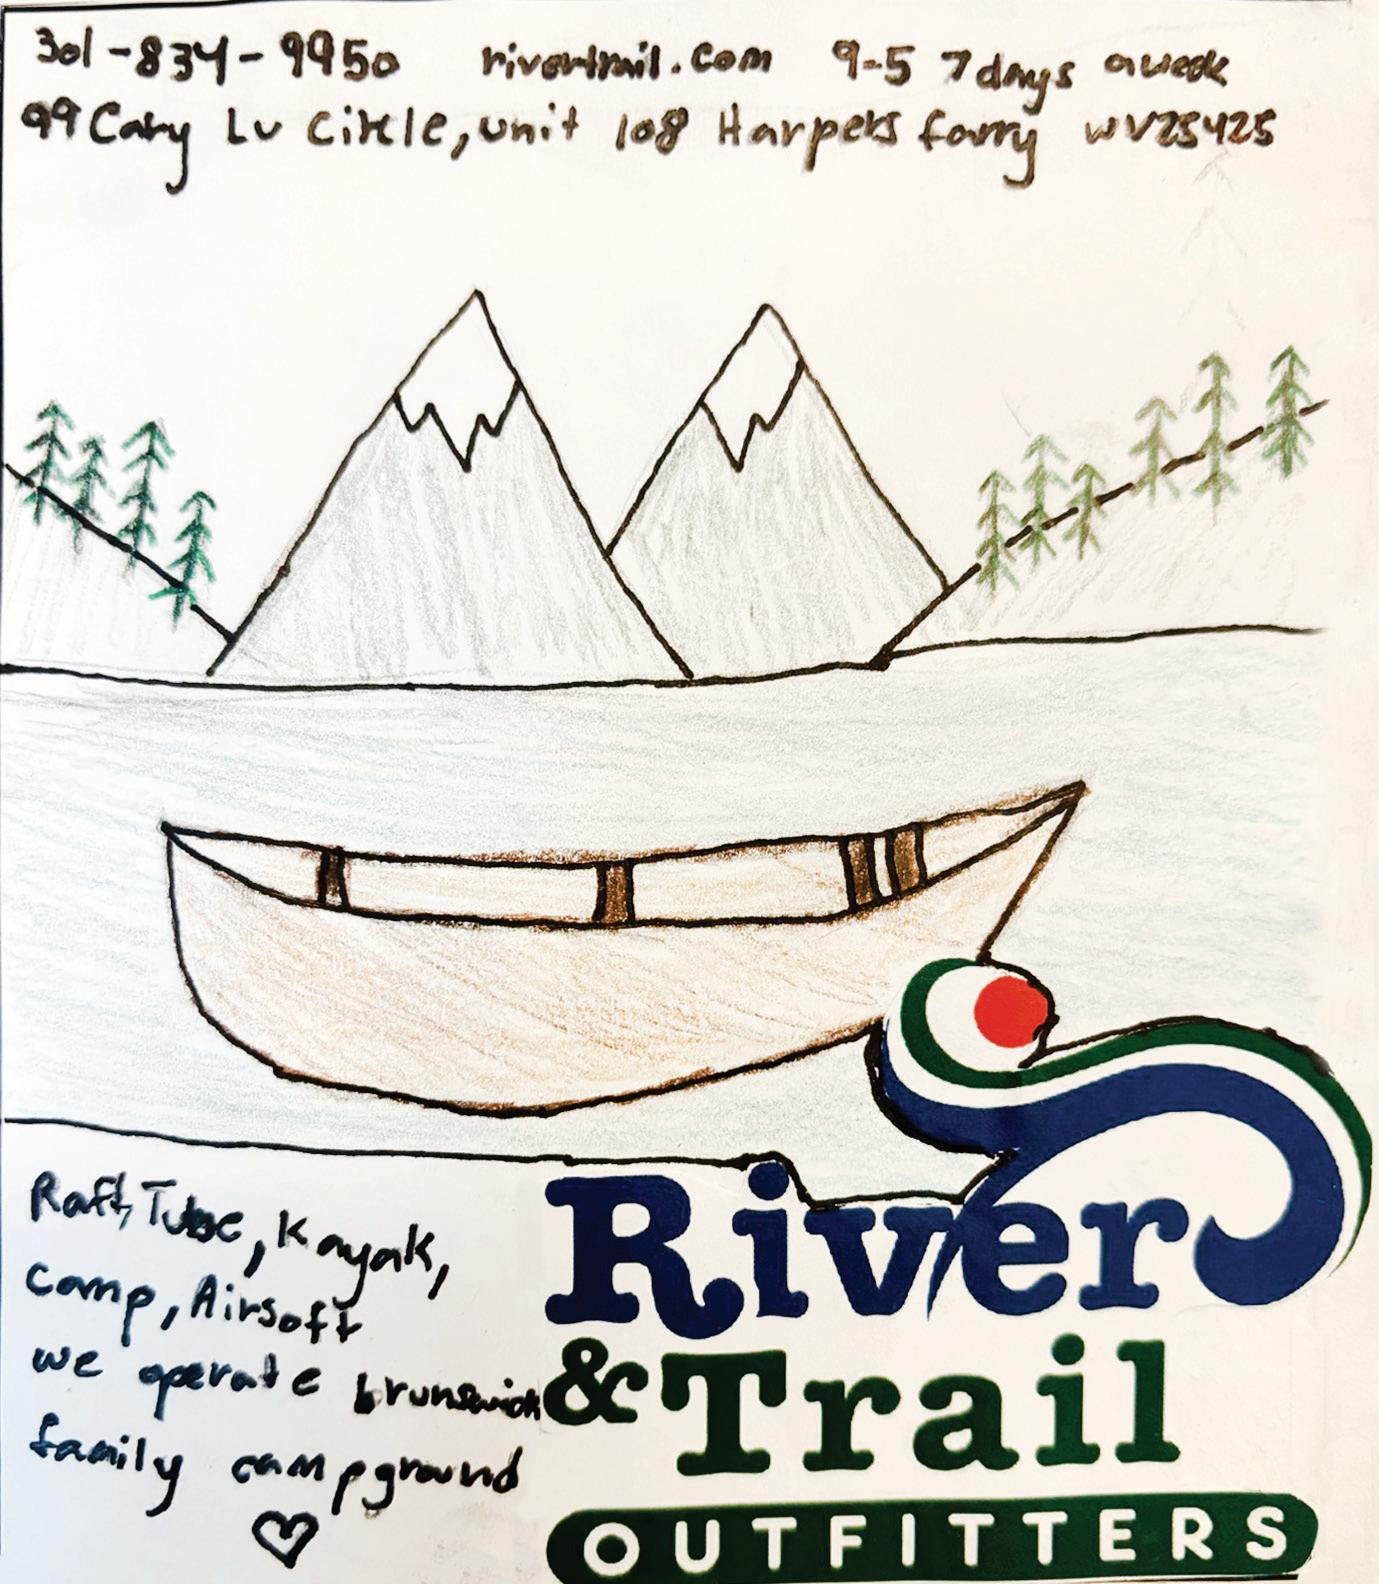 301-834-9950 rivertrail.com 9-5 7 days a week
99 Cary Lv Cirkle, unit 108 Harpers farry WV25425
Raft, Tube, Kayak,
Camp, Airsoft
we operate brunswick
family campground
River
& Trail
OUTFITTERS